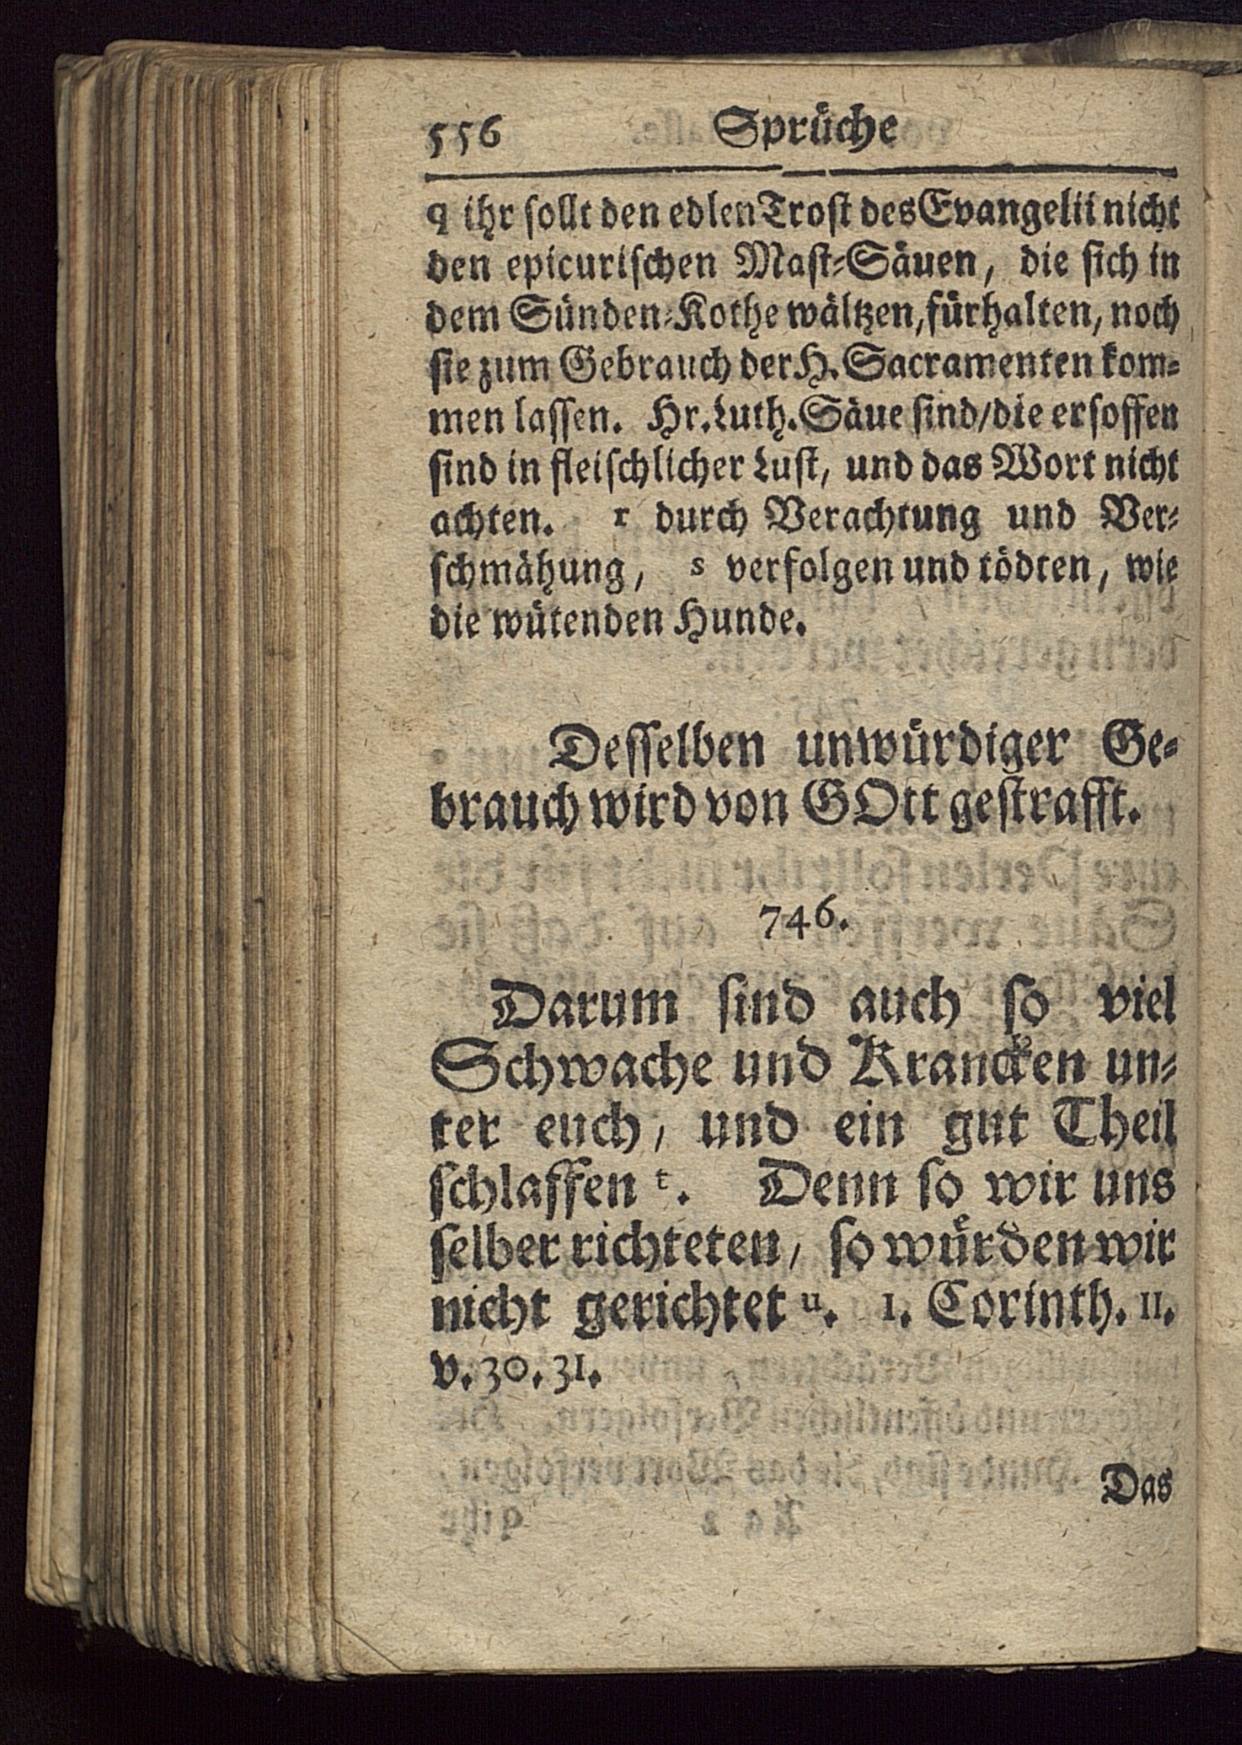 556 Sprüche
q ihr sollt den edlen Trost des Evangelii nicht
den epicurischen Mast-Säuen, die sich in
dem Sünden-Kothe wältzen, fürhalten, noch
sie zum Gebrauch der H. Sacramenten kom-
men lassen. Hr. Luth. Säue sind/die ersoffen
sind in fleischlicher Lust, und das Wort nicht
achten. r durch Verachtung und Ver-
schmähung, s verfolgen und tödten, wie
die wütenden Hunde.
Desselben unwürdiger Ge-
brauch wird von GOtt gestrafft.
746.
Darum sind auch so viel
Schwache und Krancken un-
ter euch, und ein gut Theil
schlaffen t. Denn so wir uns
selber richteten, so würden wir
nicht gerichtet u. 1. Corinth. 11.
v. 30. 31.
Das